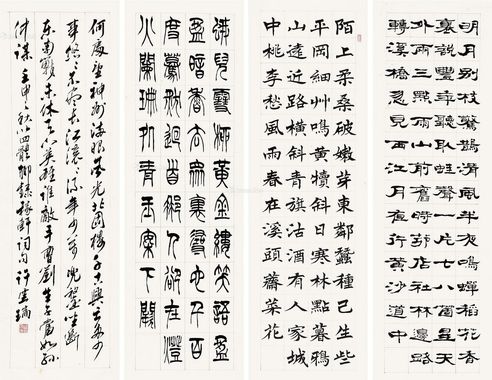 明月別枝驚鵲清風半夜鳴蟬稻花香
裏說豐年聽取蛙聲一片七八個星天
外兩三點雨山前舊時茅店社林邊路
轉溪橋忽見西江月夜行黃沙道中
陌上柔桑破嫩芽東鄰蠶種已生些
平岡細艸鳴黃犢斜日寒林點暮鴉
山遠近路橫斜青旗沽酒有人家城
中桃李愁風雨春在溪頭薺菜花
蛾兒雪柳黃金縷笑語盈
盈暗香去眾裏尋他千百
度驀然迴首那人卻在燈
火闌珊處青玉案下闋
何處望神州滿眼風光北固樓千古興亡多少
事悠悠不盡長江滾滾流年少萬兜鍪坐斷
東南戰未休天下英雄誰敵手曹劉生子當如孫
仲謀 壬申之秋以四體 稼軒詞句 許